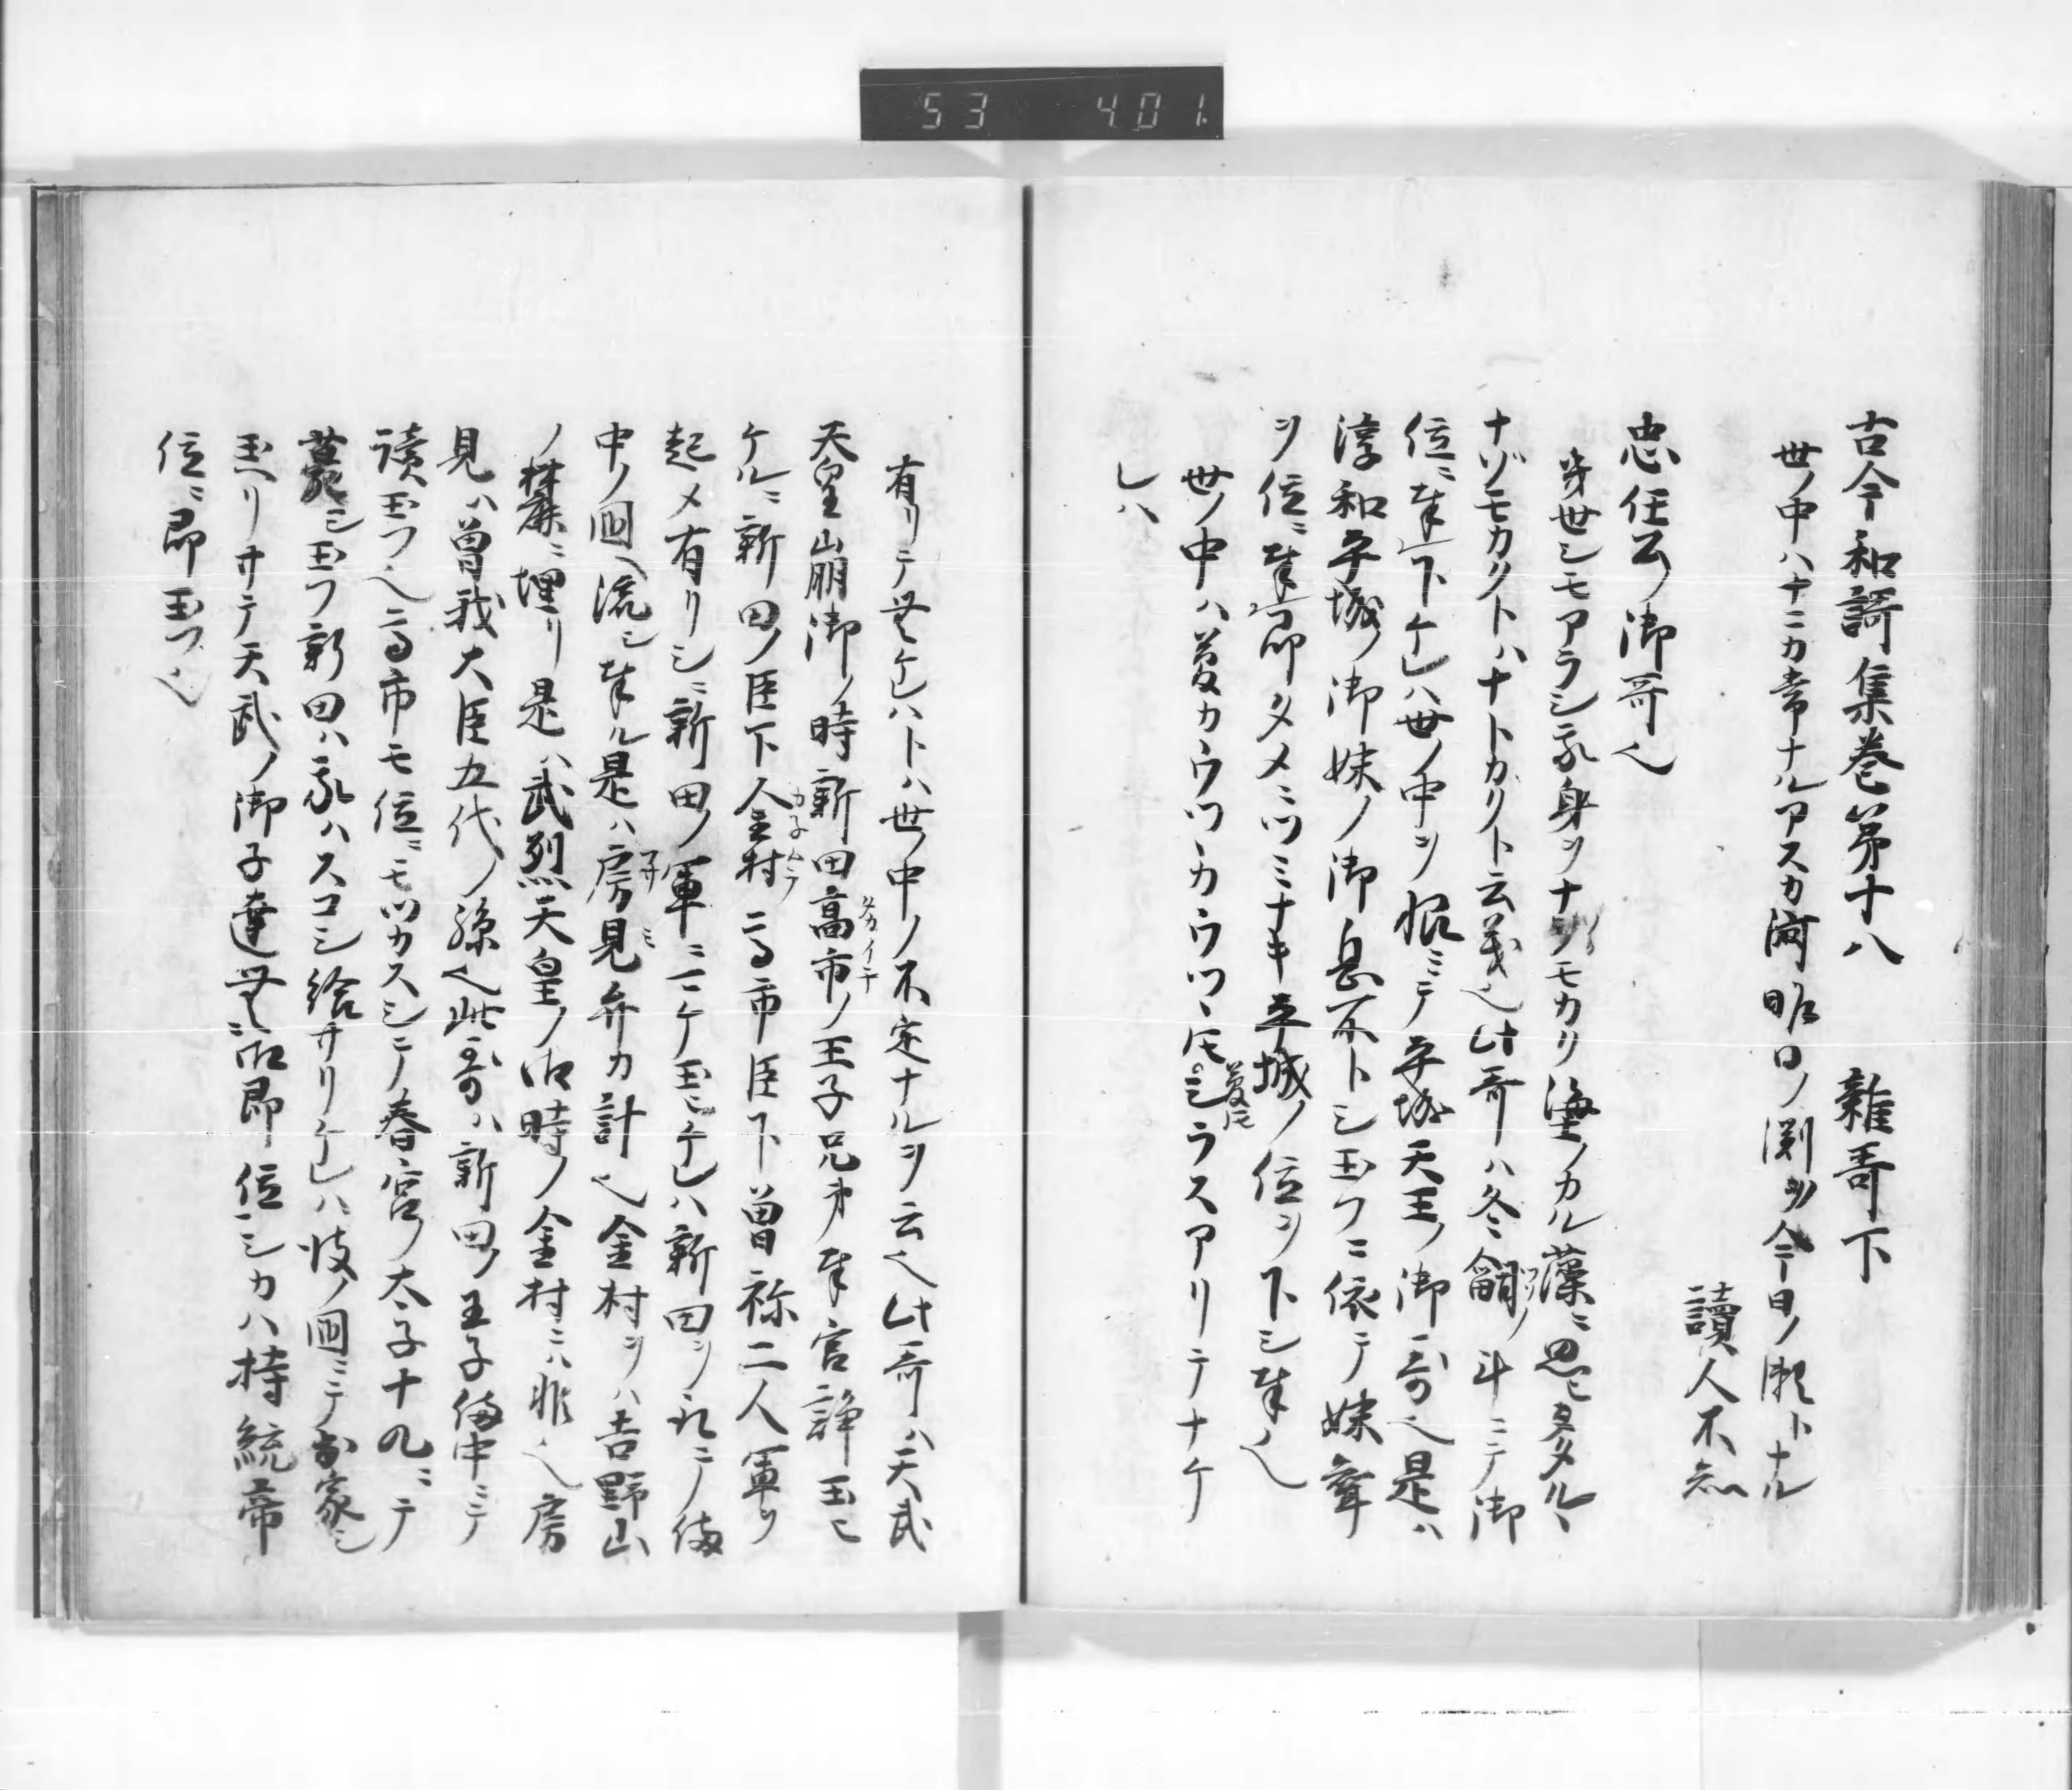 53 401.
古今和謌集巻第十八 雜哥下
世ノ中ハナニカ常ナルアスカ河昨日ノ渕ソ今日ノ瀬トナル
讀人不知
忠仁公ノ御哥也
世シモアラシ我身ヲナソモカク海士ノカル藻ニ思ヒ乱タルヽ
ナソモカクトハナトカクト云義也此哥ハ冬嗣ノ斗ニテ御
位ニ奉下ケレハ世ノ中ヲ恨ミテ平城天王ノ御哥也是ハ
淳和平城ノ御妹ノ御息所トシ玉フニ依テ妹聟
ヲ位ニ奉即タメニツミナキ平城ノ位ヲ下シ奉也
世ノ中ハ夢カウツヽカウツヽ𪜈夢𪜈シラスアリテナケ
レハ
有リテ無ケレハトハ世ノ中ノ不定ナルヲ云也此哥ハ天武
天皇崩御ノ時新田高市ノ王子兄弟 官諍玉ヒ
タカイチ
ケルニ新田ノ臣下金村高市臣下曽祢二人軍ヲ
カネムラ
起メ有リシニ新田ノ軍ニマケ玉ヒケレハ新田ヲ取ニテ備
中ノ国ヘ流シ奉ル是ハ房見弁カ計也金村ヲハ吉野山
ノ麓ニ埋リ是ハ武烈天皇ノ御時ノ金村ニハ非也房
見ハ曽我大臣五代ノ孫也此哥ハ新田ノ王子備中ニテ
読玉フ也高市モ位ニモツカスシテ春宮ノ太子十九ニテ
薨シ玉フ新田ハ命ハスコシ給ナリケレハ彼ノ国ニテ出家シ
玉ヘリサテ天武ノ御子達無御即位シカハ持統帝
位ニ即玉フ也